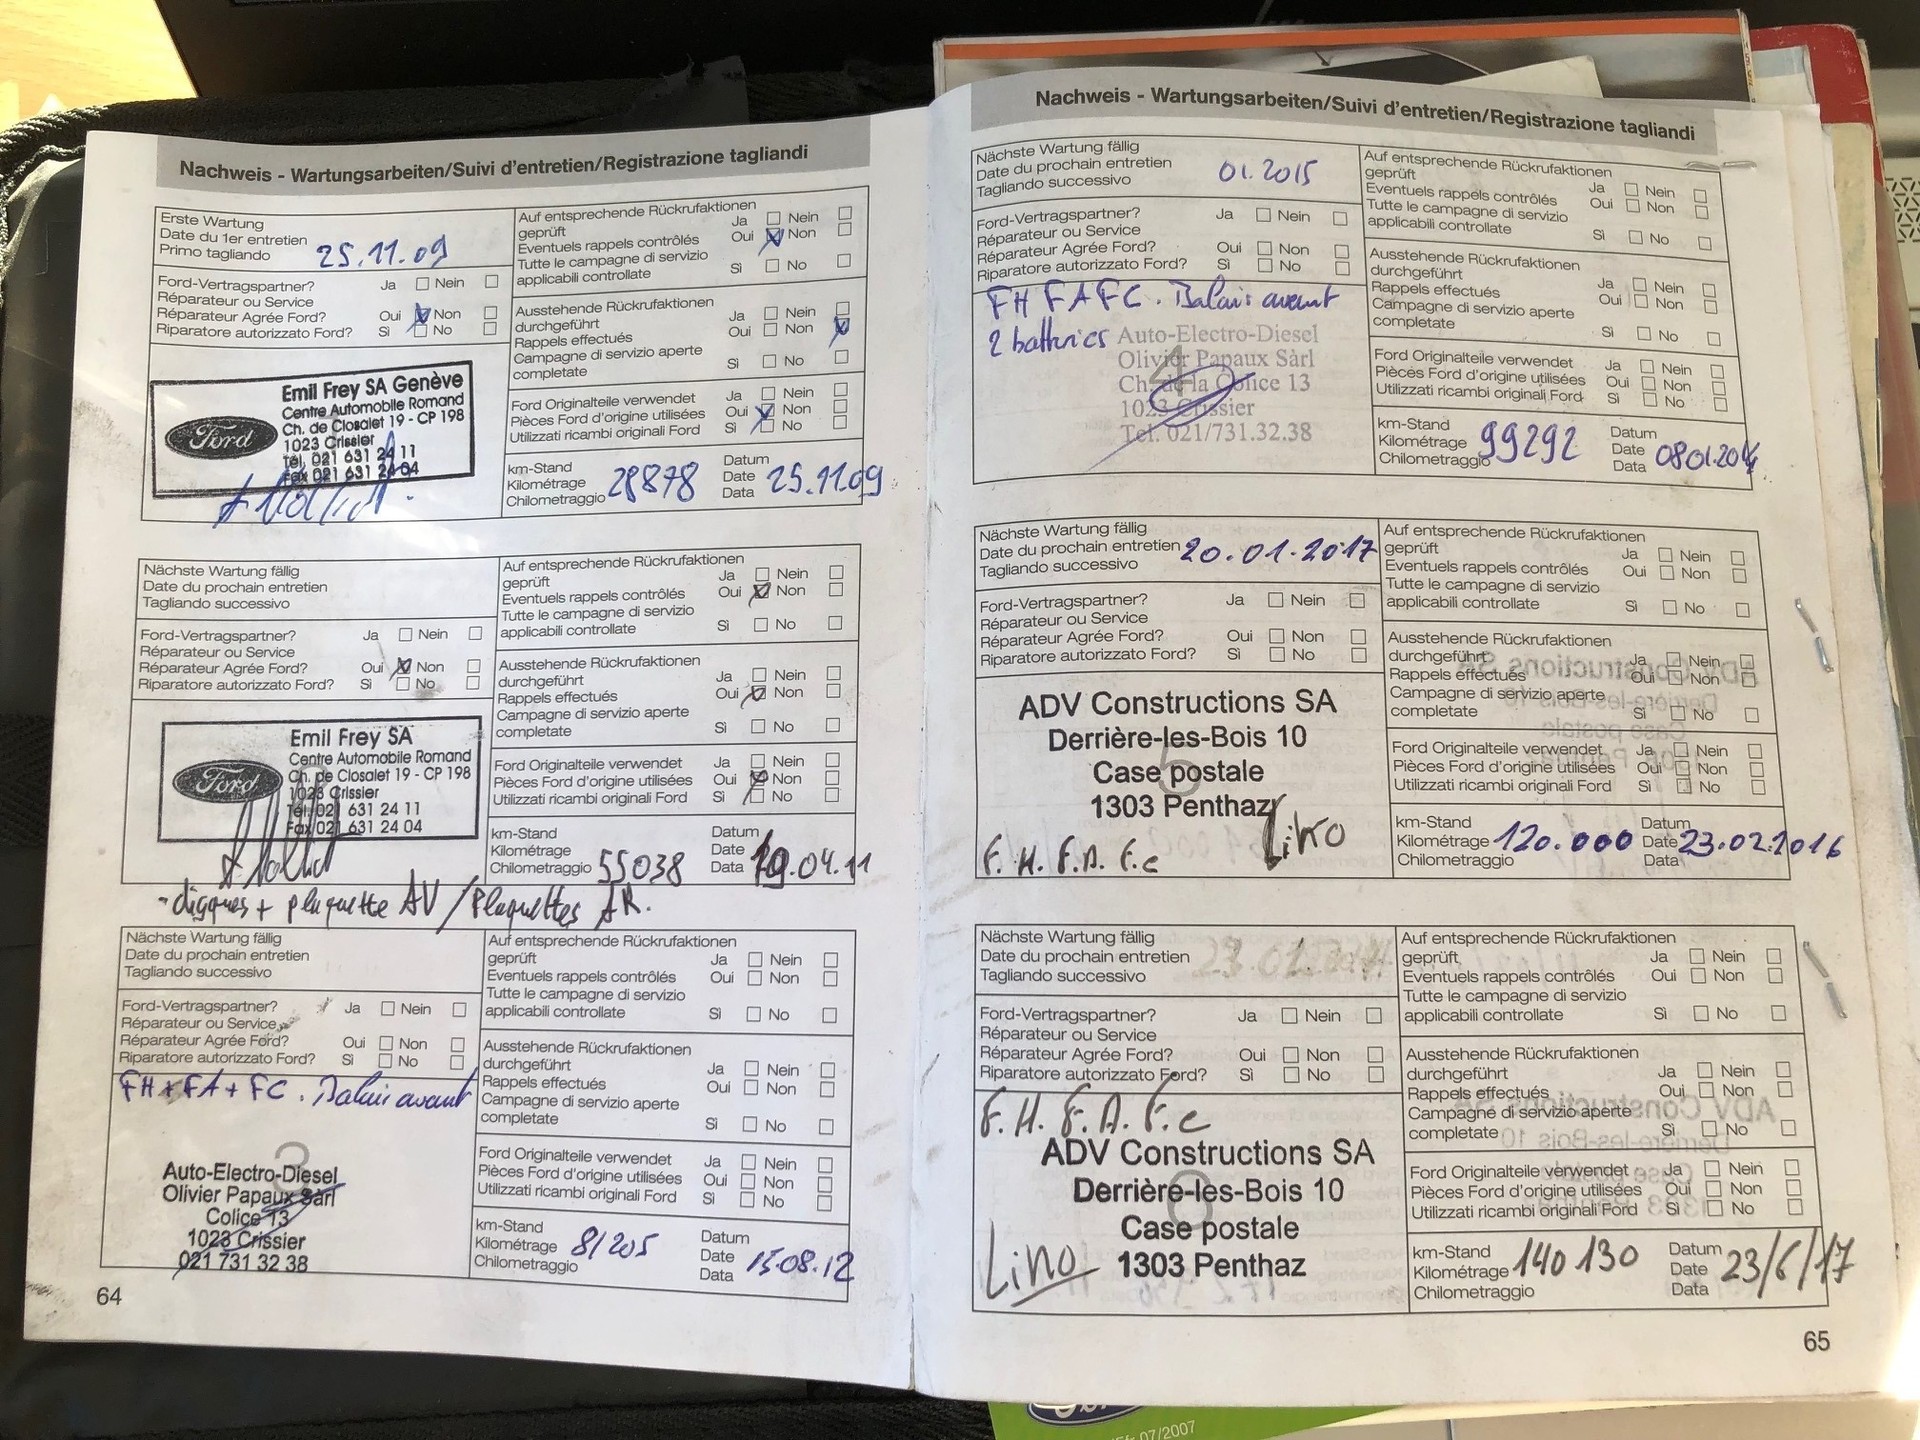 Nachweis - Wartungsarbeiten/Suivi d'entretien/Registrazione tagliandi
Erste Wartung
Date du 1er entretien
Primo tagliando
25.11.09
Auf entsprechende Rückrufaktionen
geprüft
Ja Nein
Eventuels rappels contrôlés
Oui Non
Tutte le campagne di servizio
applicabili controllate
Sì No
Ford-Vertragspartner?
Ja Nein
Réparateur ou Service
Réparateur Agrée Ford?
Oui Non
Riparatore autorizzato Ford?
Sì No
Ausstehende Rückrufaktionen
durchgeführt
Ja Nein
Rappels effectués
Oui Non
Campagne di servizio aperte
completate
Sì No
Emil Frey SA Genève
Centre Automobile Romand
Ch. de Closalet 19 - CP 198
1023 Crissier
Tél. 021 631 24 11
Fax 021 631 24 04
Ford
Ford Originalteile verwendet
Ja Nein
Pièces Ford d'origine utilisées
Oui Non
Utilizzati ricambi originali Ford
Sì No
km-Stand
Kilométrage
Chilometraggio
28878
Datum
Date
Data
25.11.09
Nächste Wartung fällig
Date du prochain entretien
Tagliando successivo
Auf entsprechende Rückrufaktionen
geprüft
Ja Nein
Eventuels rappels contrôlés
Oui Non
Tutte le campagne di servizio
applicabili controllate
Sì No
Ford-Vertragspartner?
Ja Nein
Réparateur ou Service
Réparateur Agrée Ford?
Oui Non
Riparatore autorizzato Ford?
Sì No
Ausstehende Rückrufaktionen
durchgeführt
Ja Nein
Rappels effectués
Oui Non
Campagne di servizio aperte
completate
Sì No
Emil Frey SA
Centre Automobile Romand
Ch. de Closalet 19 - CP 198
1023 Crissier
Tél. 021 631 24 11
Fax 021 631 24 04
Ford
Ford Originalteile verwendet
Ja Nein
Pièces Ford d'origine utilisées
Oui Non
Utilizzati ricambi originali Ford
Sì No
km-Stand
Kilométrage
Chilometraggio
55038
Datum
Date
Data
19.04.11
- disques + plaquette AV / Plaquettes AR.
Nächste Wartung fällig
Date du prochain entretien
Tagliando successivo
Auf entsprechende Rückrufaktionen
geprüft
Ja Nein
Eventuels rappels contrôlés
Oui Non
Tutte le campagne di servizio
applicabili controllate
Sì No
Ford-Vertragspartner?
Ja Nein
Réparateur ou Service
Réparateur Agrée Ford?
Oui Non
Riparatore autorizzato Ford?
Sì No
Ausstehende Rückrufaktionen
durchgeführt
Ja Nein
Rappels effectués
Oui Non
Campagne di servizio aperte
completate
Sì No
FH + FA + FC . Balais avant
3
Auto-Electro-Diesel
Olivier Papaux Sàrl
Colice 13
1023 Crissier
021 731 32 38
Ford Originalteile verwendet
Ja Nein
Pièces Ford d'origine utilisées
Oui Non
Utilizzati ricambi originali Ford
Sì No
km-Stand
Kilométrage
Chilometraggio
81205
Datum
Date
Data
15.08.12
64
Nachweis - Wartungsarbeiten/Suivi d'entretien/Registrazione tagliandi
Nächste Wartung fällig
Date du prochain entretien
Tagliando successivo
01.2015
Auf entsprechende Rückrufaktionen
geprüft
Ja Nein
Eventuels rappels contrôlés
Oui Non
Tutte le campagne di servizio
applicabili controllate
Sì No
Ford-Vertragspartner?
Ja Nein
Réparateur ou Service
Réparateur Agrée Ford?
Oui Non
Riparatore autorizzato Ford?
Sì No
Ausstehende Rückrufaktionen
durchgeführt
Ja Nein
Rappels effectués
Oui Non
Campagne di servizio aperte
completate
Sì No
FH FA FC . Balais avant
2 batteries
4
Auto-Electro-Diesel
Olivier Papaux Sàrl
Ch. de la Colice 13
1023 Crissier
Tel. 021/731.32.38
Ford Originalteile verwendet
Ja Nein
Pièces Ford d'origine utilisées
Oui Non
Utilizzati ricambi originali Ford
Sì No
km-Stand
Kilométrage
Chilometraggio
99292
Datum
Date
Data
08.01.2014
Nächste Wartung fällig
Date du prochain entretien
Tagliando successivo
20.01.2017
Auf entsprechende Rückrufaktionen
geprüft
Ja Nein
Eventuels rappels contrôlés
Oui Non
Tutte le campagne di servizio
applicabili controllate
Sì No
Ford-Vertragspartner?
Ja Nein
Réparateur ou Service
Réparateur Agrée Ford?
Oui Non
Riparatore autorizzato Ford?
Sì No
Ausstehende Rückrufaktionen
durchgeführt
Ja Nein
Rappels effectués
Oui Non
Campagne di servizio aperte
completate
Sì No
5
ADV Constructions SA
Derrière-les-Bois 10
Case postale
1303 Penthaz
Lino
F. H. F. A. F. c
Ford Originalteile verwendet
Ja Nein
Pièces Ford d'origine utilisées
Oui Non
Utilizzati ricambi originali Ford
Sì No
km-Stand
Kilométrage
Chilometraggio
120.000
Datum
Date
Data
23.02.2016
Nächste Wartung fällig
Date du prochain entretien
Tagliando successivo
Auf entsprechende Rückrufaktionen
geprüft
Ja Nein
Eventuels rappels contrôlés
Oui Non
Tutte le campagne di servizio
applicabili controllate
Sì No
Ford-Vertragspartner?
Ja Nein
Réparateur ou Service
Réparateur Agrée Ford?
Oui Non
Riparatore autorizzato Ford?
Sì No
Ausstehende Rückrufaktionen
durchgeführt
Ja Nein
Rappels effectués
Oui Non
Campagne di servizio aperte
completate
Sì No
F. H. F. A. F. c
6
ADV Constructions SA
Derrière-les-Bois 10
Case postale
1303 Penthaz
Lino
Ford Originalteile verwendet
Ja Nein
Pièces Ford d'origine utilisées
Oui Non
Utilizzati ricambi originali Ford
Sì No
km-Stand
Kilométrage
Chilometraggio
140 130
Datum
Date
Data
23/6/17
65
07/2007